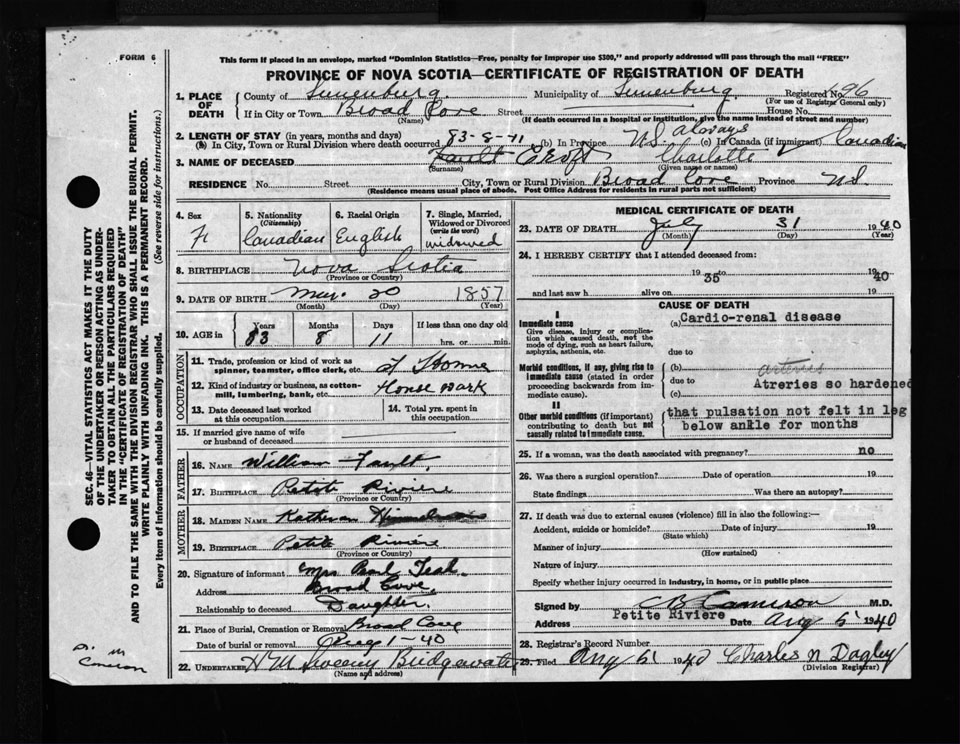 FORM 6
This form if placed in an envelope, marked "Dominion Statistics—Free, penalty for improper use $300," and properly addressed will pass through the mail "FREE"
PROVINCE OF NOVA SCOTIA—CERTIFICATE OF REGISTRATION OF DEATH
1. PLACE OF DEATH
County of Lunenburg Municipality of Lunenburg Registered No. 96
(For use of Registrar General only)
If in City or Town Broad Cove Street House No.
(Name) (If death occurred in a hospital or institution, give the name instead of street and number)
2. LENGTH OF STAY (in years, months and days)
(a) In City, Town or Rural Division where death occurred 83-8-11 (b) In Province N.S. always (c) In Canada (if immigrant) Canadian
3. NAME OF DECEASED Fault Croft Charlotte
(Surname) (Given name or names)
RESIDENCE No. Street City, Town or Rural Division Broad Cove Province N.S.
(Residence means usual place of abode. Post Office Address for residents in rural parts not sufficient)
4. Sex F
5. Nationality (Citizenship) Canadian
6. Racial Origin English
7. Single, Married, Widowed or Divorced (write the word) widowed
8. BIRTHPLACE Nova Scotia
(Province or Country)
9. DATE OF BIRTH 20 1857
(Month) (Day) (Year)
10. AGE in Years Months Days If less than one day old
83 8 11 hrs. or min.
OCCUPATION
11. Trade, profession or kind of work as spinner, teamster, office clerk, etc. at Home
12. Kind of industry or business, as cotton-mill, lumbering, bank, etc. House work
13. Date deceased last worked at this occupation
14. Total yrs. spent in this occupation
15. If married give name of wife or husband of deceased
FATHER
16. NAME William Fault.
17. BIRTHPLACE Petite Riviere
(Province or Country)
MOTHER
18. MAIDEN NAME
19. BIRTHPLACE Petite Riviere
(Province or Country)
20. Signature of informant Mrs
Address Broad Cove
Relationship to deceased Daughter.
21. Place of Burial, Cremation or Removal Broad Cove
Date of burial or removal Aug 1-40
22. UNDERTAKER H M Sweeny Bridgewater
(Name and address)
MEDICAL CERTIFICATE OF DEATH
23. DATE OF DEATH July 31 1940
(Month) (Day) (Year)
24. I HEREBY CERTIFY that I attended deceased from:
1935 1940
and last saw h alive on 19
CAUSE OF DEATH
I
Immediate cause
Give disease, injury or complication which caused death, not the mode of dying, such as heart failure, asphyxia, asthenia, etc.
(a) Cardio-renal disease
due to
Morbid conditions, if any, giving rise to immediate cause (stated in order proceeding backwards from immediate cause).
arteries
(b) due to Atreries so hardened
(c)
II
Other morbid conditions (if important) contributing to death but not causally related to immediate cause.
that pulsation not felt in leg
below ankle for months
25. If a woman, was the death associated with pregnancy? no
26. Was there a surgical operation? Date of operation 19
State findings Was there an autopsy?
27. If death was due to external causes (violence) fill in also the following:—
Accident, suicide or homicide? Date of injury 19
(State which)
Manner of injury
(How sustained)
Nature of injury
Specify whether injury occurred in industry, in home, or in public place
Signed by C B Cameron M.D.
Address Petite Riviere Date Aug 5 1940
28. Registrar's Record Number
29. Filed Aug 5 1940 Charles N Dagley
(Division Registrar)
SEC. 46—VITAL STATISTICS ACT MAKES IT THE DUTY
OF THE UNDERTAKER OR PERSON ACTING AS UNDER-
TAKER TO OBTAIN ALL THE PARTICULARS REQUIRED
IN THE "CERTIFICATE OF REGISTRATION OF DEATH"
AND TO FILE THE SAME WITH THE DIVISION REGISTRAR WHO SHALL ISSUE THE BURIAL PERMIT.
WRITE PLAINLY WITH UNFADING INK. THIS IS A PERMANENT RECORD.
Every item of information should be carefully supplied. (See reverse side for instructions.)
Cameron